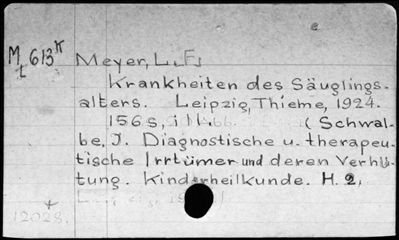 M 613 K
t
Meyer, L. F.
Krankheiten des Säuglings-
alters. Leipzig, Thieme, 1924.
156 S., ill. (Schwal-
be, J. Diagnostische u. therapeu-
tische Irrtümer und deren Verhü-
tung. Kinderheilkunde. H. 2,
12028.